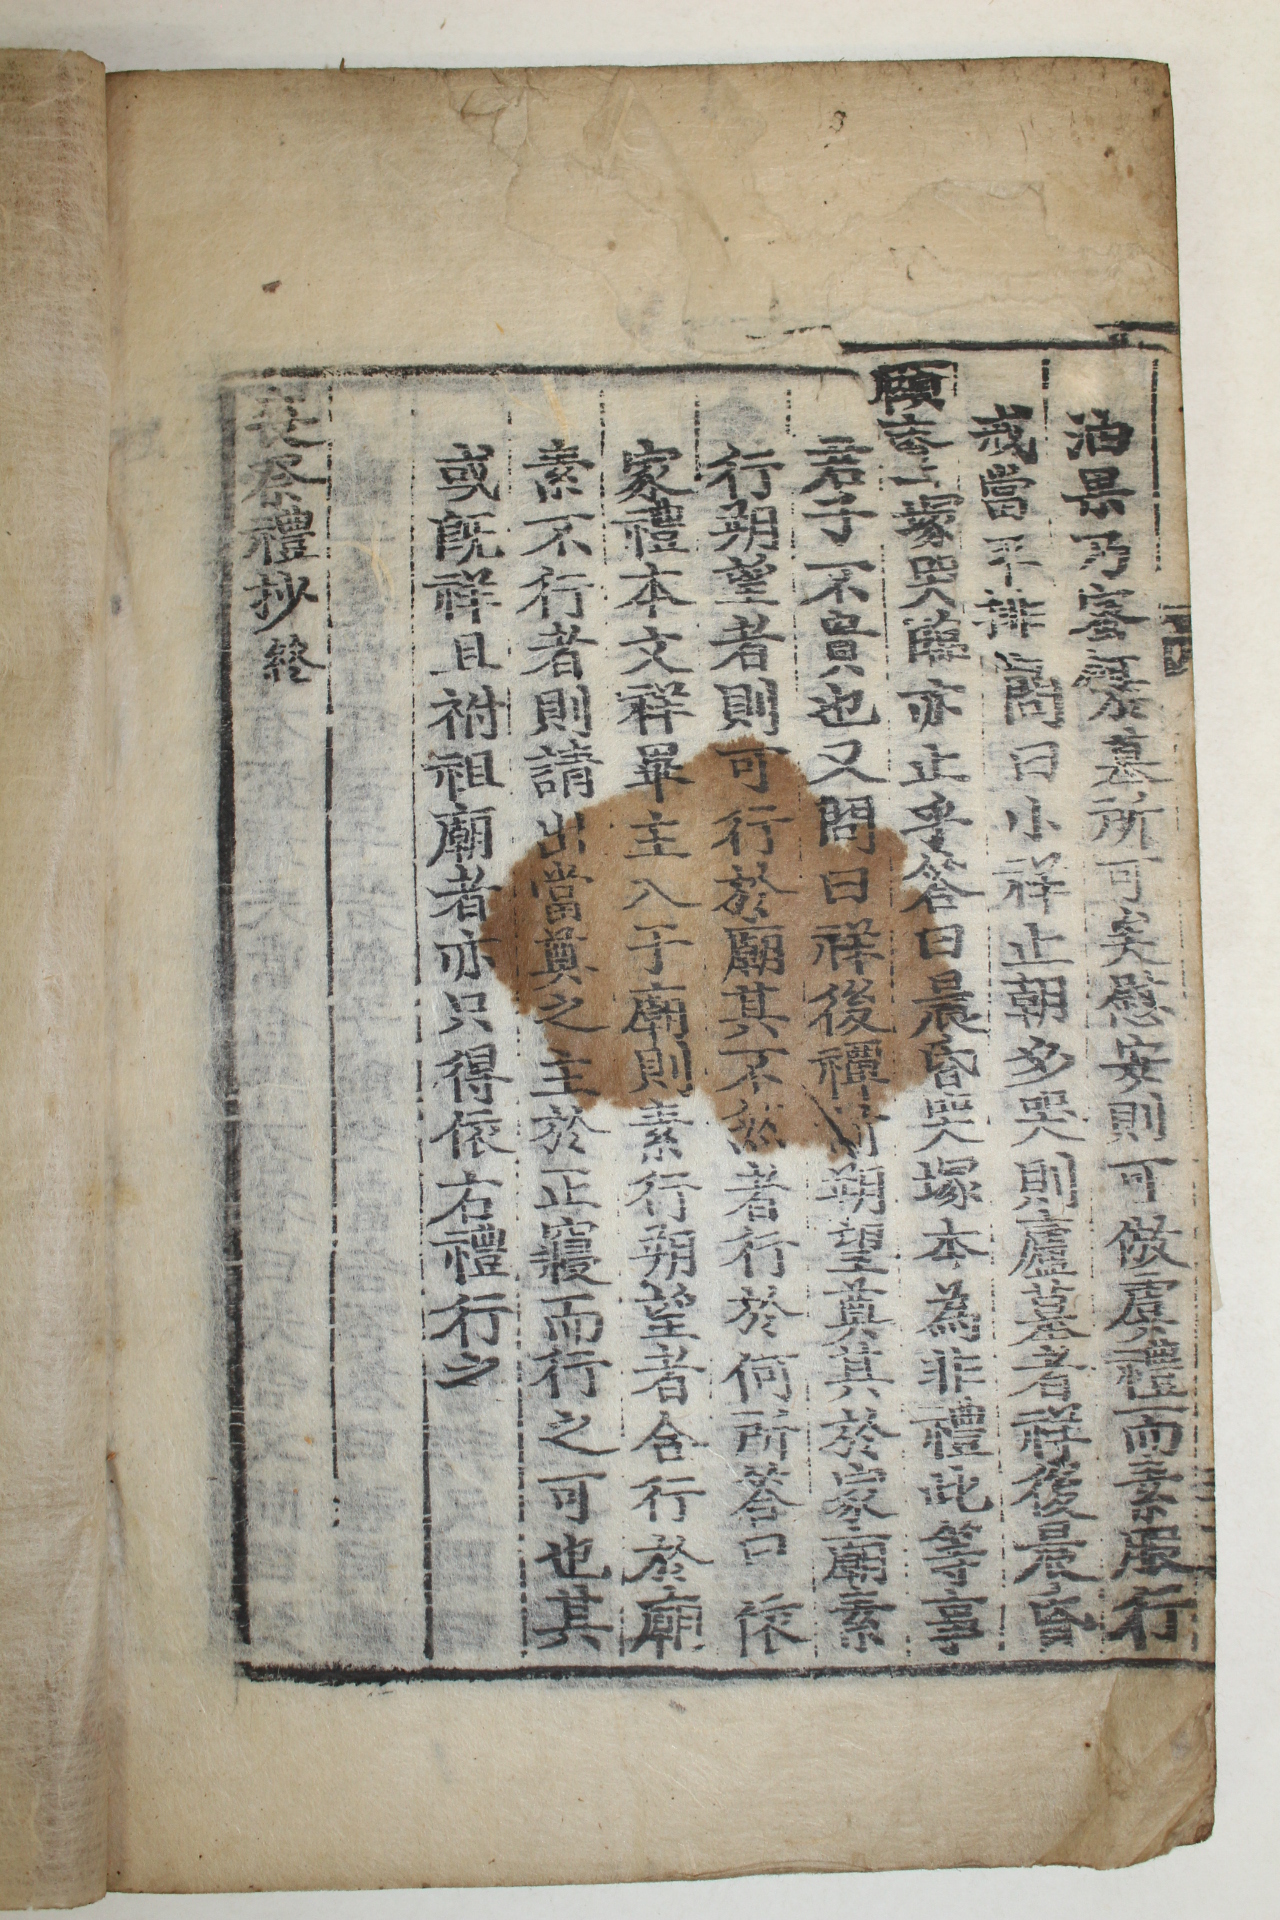 油果乃蜜 於墓所可矣慰安則可倣虞禮而素服行
或當平排 問曰小祥止朝夕哭則廬墓者祥後晨昏
上塚哭臨亦止乎答曰晨昏哭塚本為非禮此等事
君子不貴也又問曰祥後禫前朔望奠其於家廟素
行朔望者則可行於廟其不然者行於何所答曰依
家禮本文祥畢主入于廟則素行朔望者合行於廟
素不行者則請出當奠之主於正寢而行之可也其
或旣祥且祔祖廟者亦只得依右禮行之
喪祭禮抄 終